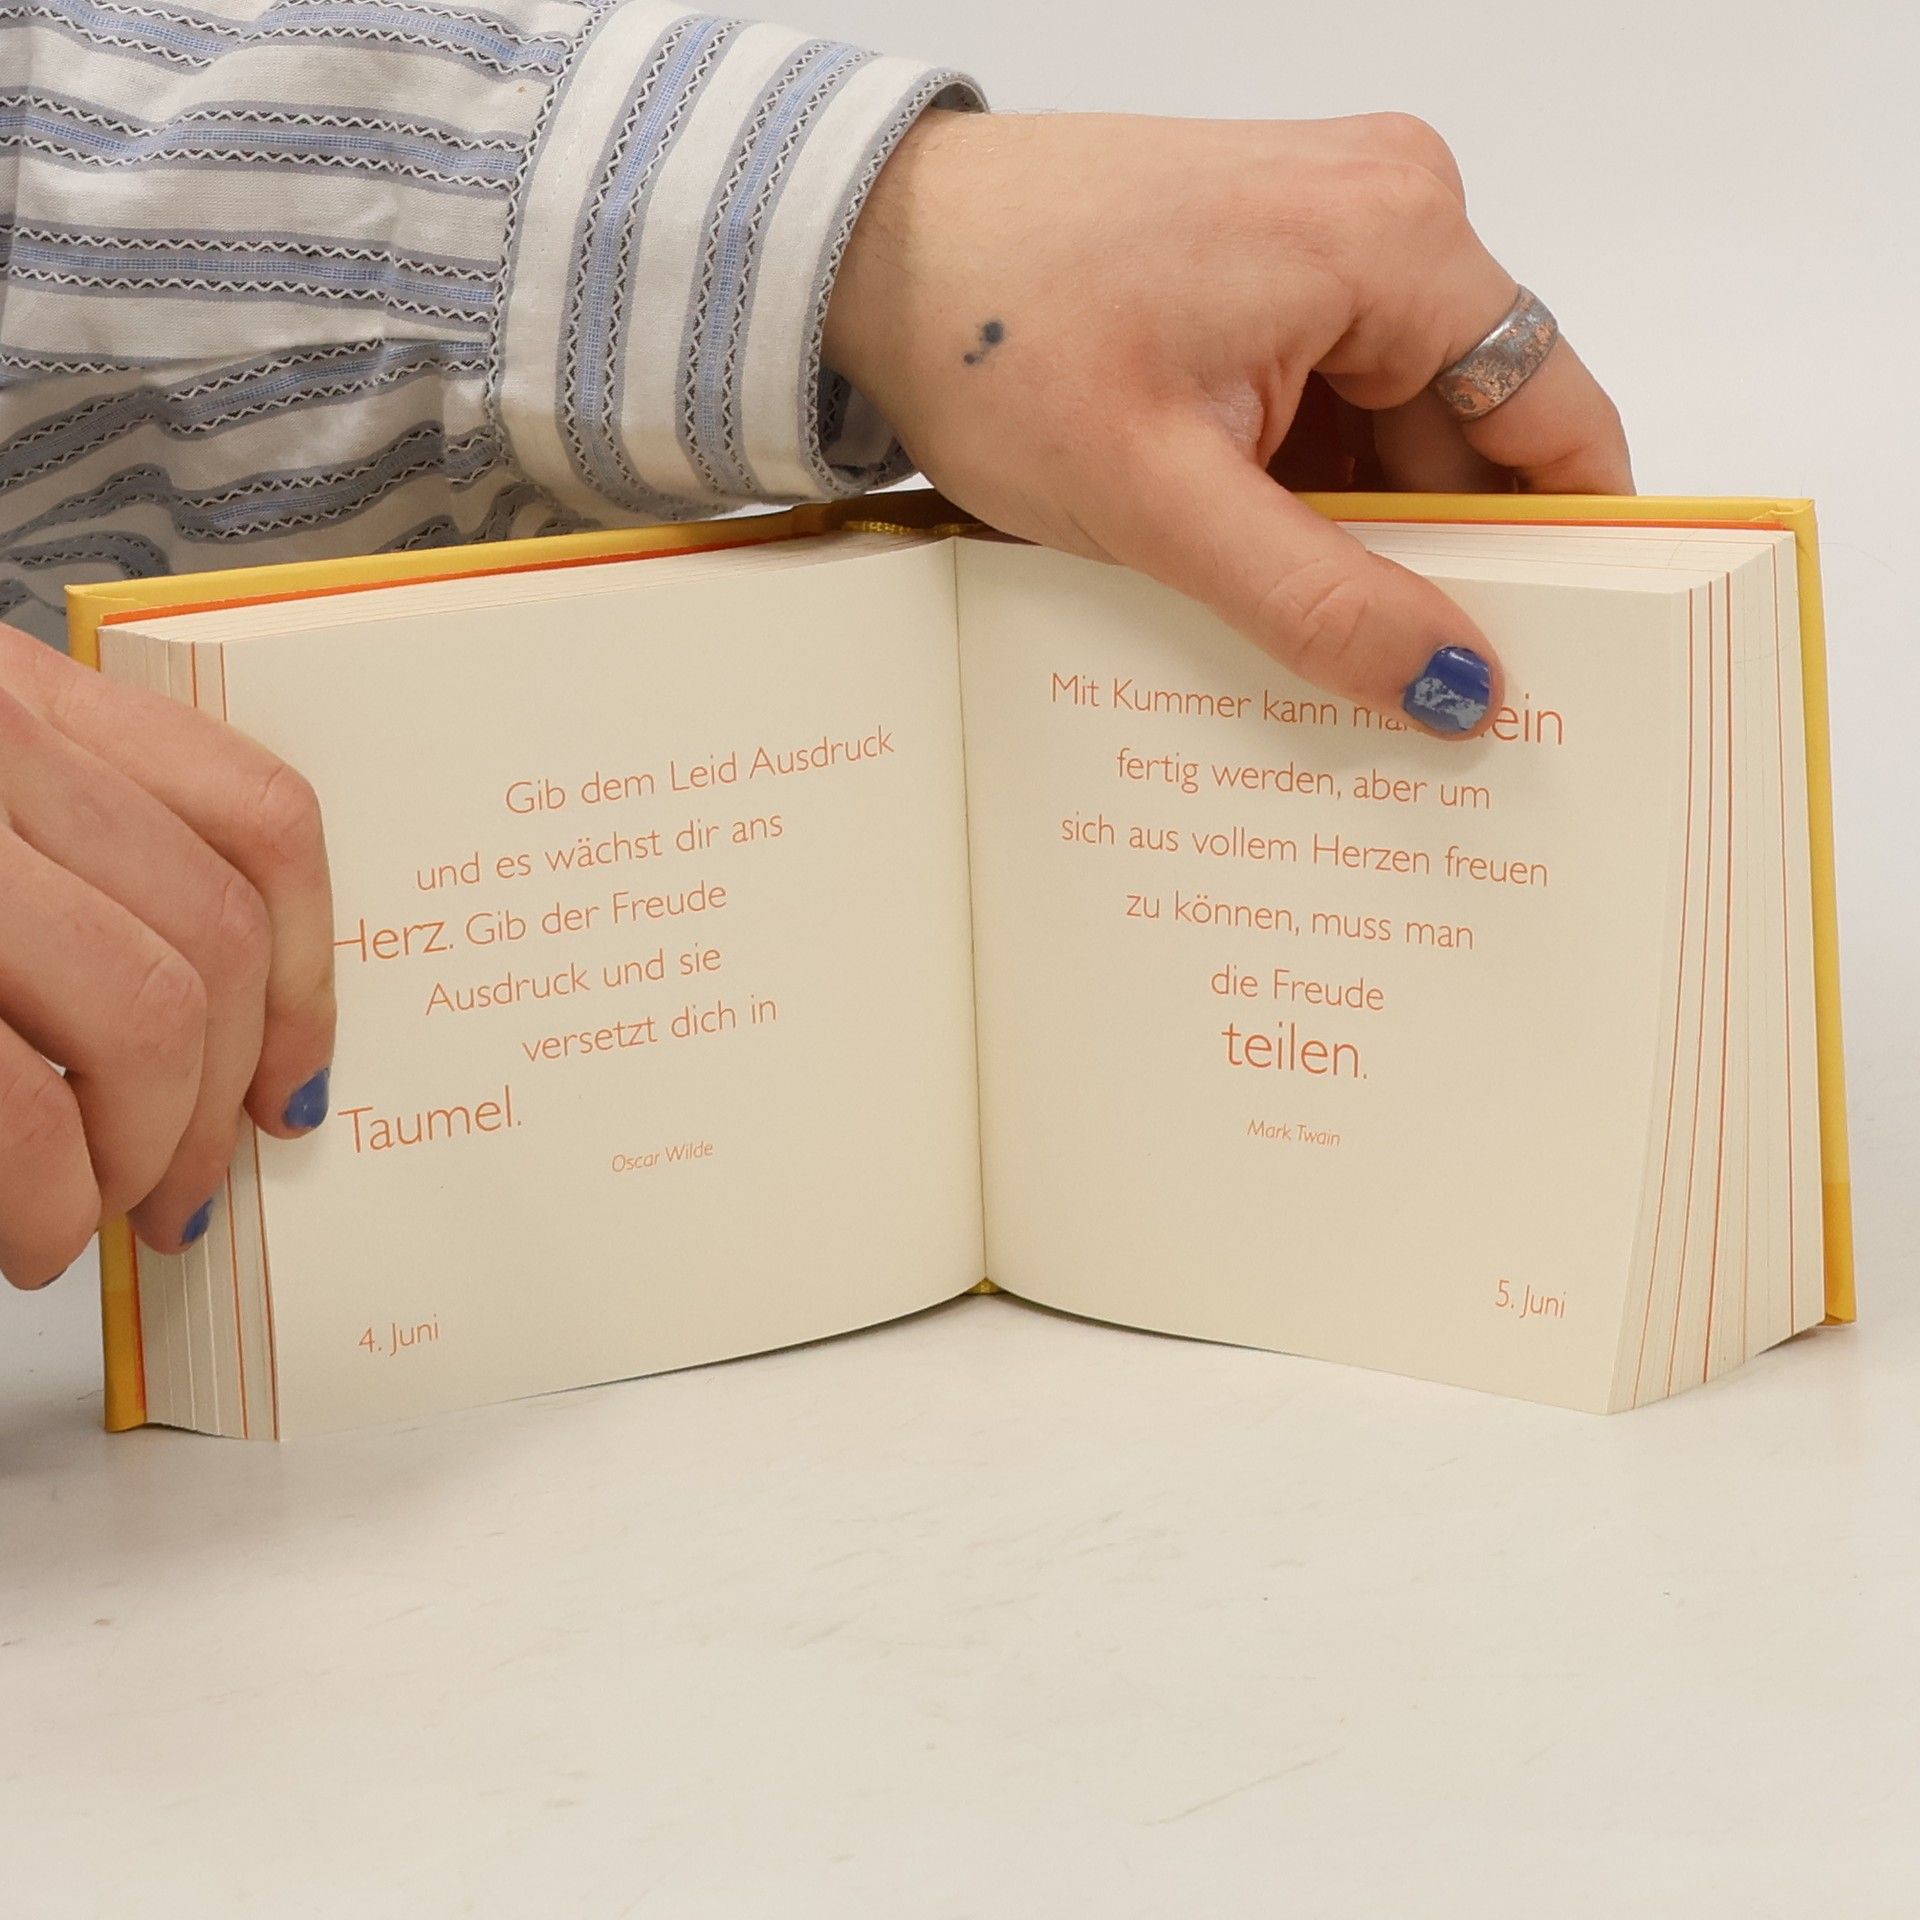 Gib dem Leid Ausdruck
und es wächst dir ans
Herz. Gib der Freude
Ausdruck und sie
versetzt dich in
Taumel.
Oscar Wilde
4. Juni
Mit Kummer kann
fertig werden, aber um
sich aus vollem Herzen freuen
zu können, muss man
die Freude
teilen.
Mark Twain
5. Juni